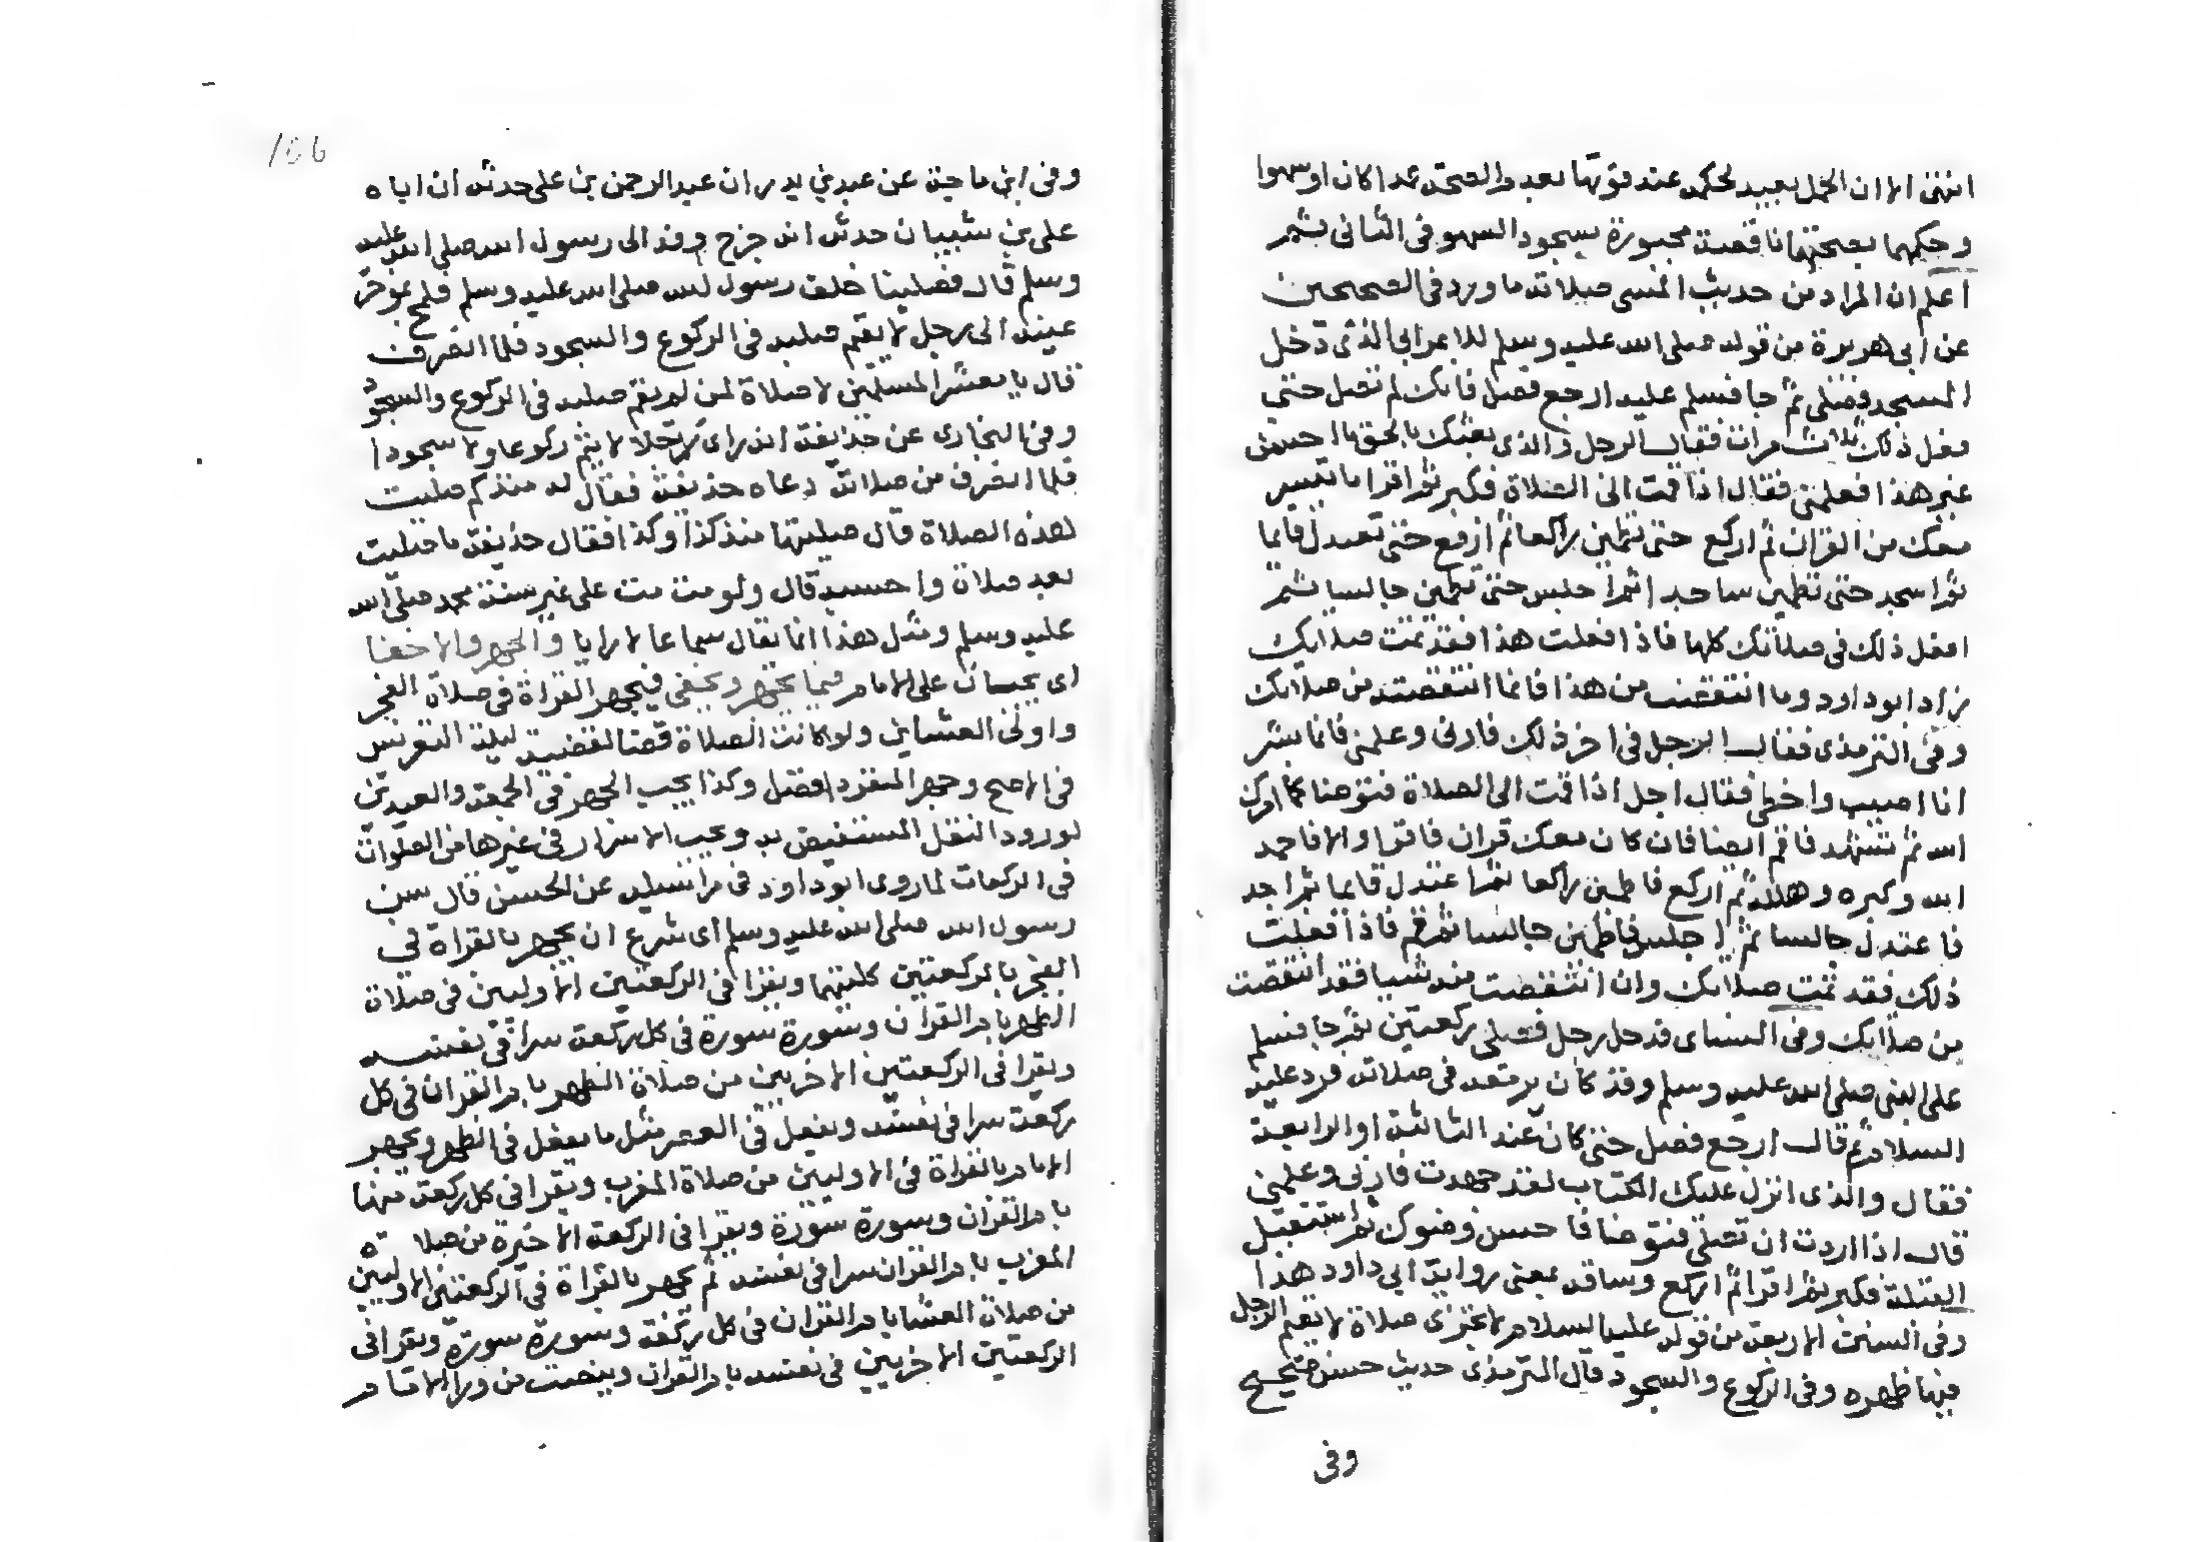 انتهى الا ان الحمل بعيد لحكمه عند فوتها بعدم الصحة عمدا كان او سهوا
وحكمها بصحتها ناقصة مجبورة بسجود السهو فى الثانى بشمر
اعلم ان المراد من حديث المسى صلاته ما ورد فى الصحيحين
عن ابى هريرة من قوله صلى الله عليه وسلم للاعرابى الذى دخل
المسجد فصلى ثم جا فسلم عليه ارجع فصل فانك لم تصل حتى
فعل ذلك ثلاث مرات فقال الرجل والذى بعثك بالحق ما احسن
غير هذا فعلمنى فقال اذا قمت الى الصلاة فكبر ثم اقرا ما تيسر
معك من القران ثم اركع حتى تطمين راكعا ثم ارفع حتى تعتدل قايما
ثم اسجد حتى تطمين ساجدا ثم اجلس حتى تطمين جالسا ثم
افعل ذلك فى صلاتك كلها فاذا فعلت هذا فقد تمت صلاتك
زاد ابو داود وما انتقصت من هذا فانما انتقصته من صلاتك
وفى الترمذى فقال الرجل فى اخر ذلك فارنى وعلمنى فانما بشر
انا اصيب واخطى فقال اجل اذا قمت الى الصلاة فتوضا كما امرك
الله ثم تشهد فاقم ايضا فان كان معك قران فاقرا والا فاحمد
الله وكبره وهلله ثم اركع فاطمين راكعا ثم اعتدل قايما ثم اسجد
فاعتدل جالسا ثم اجلس فاطمين جالسا ثم قم فاذا فعلت
ذلك فقد تمت صلاتك وان انتقصت منه شيا فقد انتقصت
من صلاتك وفى النساى قد دخل رجل فصلى ركعتين ثم جا فسلم
على النبى صلى الله عليه وسلم وقد كان يرمقه فى صلاته فرد عليه
السلام ثم قال ارجع فصل حتى كان عند الثالثة او الرابعة
فقال والذى انزل عليك الكتاب لقد جهدت فارنى وعلمنى
قال اذا اردت ان تصلى فتوضا فاحسن وضوك ثم استقبل
القبلة فكبر ثم اقرا ثم اركع وساقه بمعنى رواية ابى داود هذا
وفى السنن الاربعة من قوله عليه السلام لا تجزى صلاة لا يقيم الرجل
فيها ظهره وفى الركوع والسجود قال الترمذى حديث حسن صحيح
وفى
وفى ابن ماجة عن عبد بن بدر ان عبد الرحمن بن على حدثه ان اباه
على بن شيبان حدثه انه خرج وفد الى رسول الله صلى الله عليه
وسلم قال فصلينا خلف رسول الله صلى الله عليه وسلم فلمح بموخر
عينه الى رجل لا يقيم صلبه فى الركوع والسجود فلما انصرف
قال يا معشر المسلمين لا صلاة لمن لم يقم صلبه فى الركوع والسجود
وفى البخارى عن حذيفة انه راى رجلا لا يتم ركوعا ولا سجودا
فلما انصرف من صلاته دعاه حذيفة فقال له منذ كم صليت
هذه الصلاة قال صليتها منذ كذا وكذا فقال حذيفة ما صليت
بعد صلاة واحسبه قال ولو مت مت على غير سنة محمد صلى الله
عليه وسلم ومثل هذا انما يقال سماعا لا رايا والجهر والاخفا
اى يجبان على الامام فيما يجهر ويخفى فيجهر القراة فى صلاة الفجر
واولى العشاين ولو كانت الصلاة قضا لقضية ليلة التعريس
فى الاصح وجهر المنفرد افضل وكذا يجب الجهر فى الجمعة والعيدين
لورود النقل المستفيض به ويجب الاسرار فى غيرها من الصلوات
فى الركعات لما روى ابو داود فى مراسيله عن الحسن قال سن
رسول الله صلى الله عليه وسلم اى شرع ان يجهر بالقراة فى
الفجر بالركعتين كلتيهما ويقرا فى الركعتين الاوليين فى صلاة
الظهر بام القران وسورة سورة فى كل ركعة سرا فى نفسه
ويقرا فى الركعتين الاخريين من صلاة الظهر بام القران فى كل
ركعة سرا فى نفسه ويفعل فى العصر مثل ما يفعل فى الظهر ويجهر
الامام بالقراة فى الاوليين من صلاة المغرب ويقرا فى كل ركعة منهما
بام القران وسورة سورة ويقرا فى الركعة الاخيرة من صلاة
المغرب بام القران سرا فى نفسه ثم يجهر بالقراة فى الركعتين الاوليين
من صلاة العشا بام القران فى كل ركعة وسورة سورة ويقرا فى
الركعتين الاخريين فى نفسه بام القران وينصت من ورا الامام